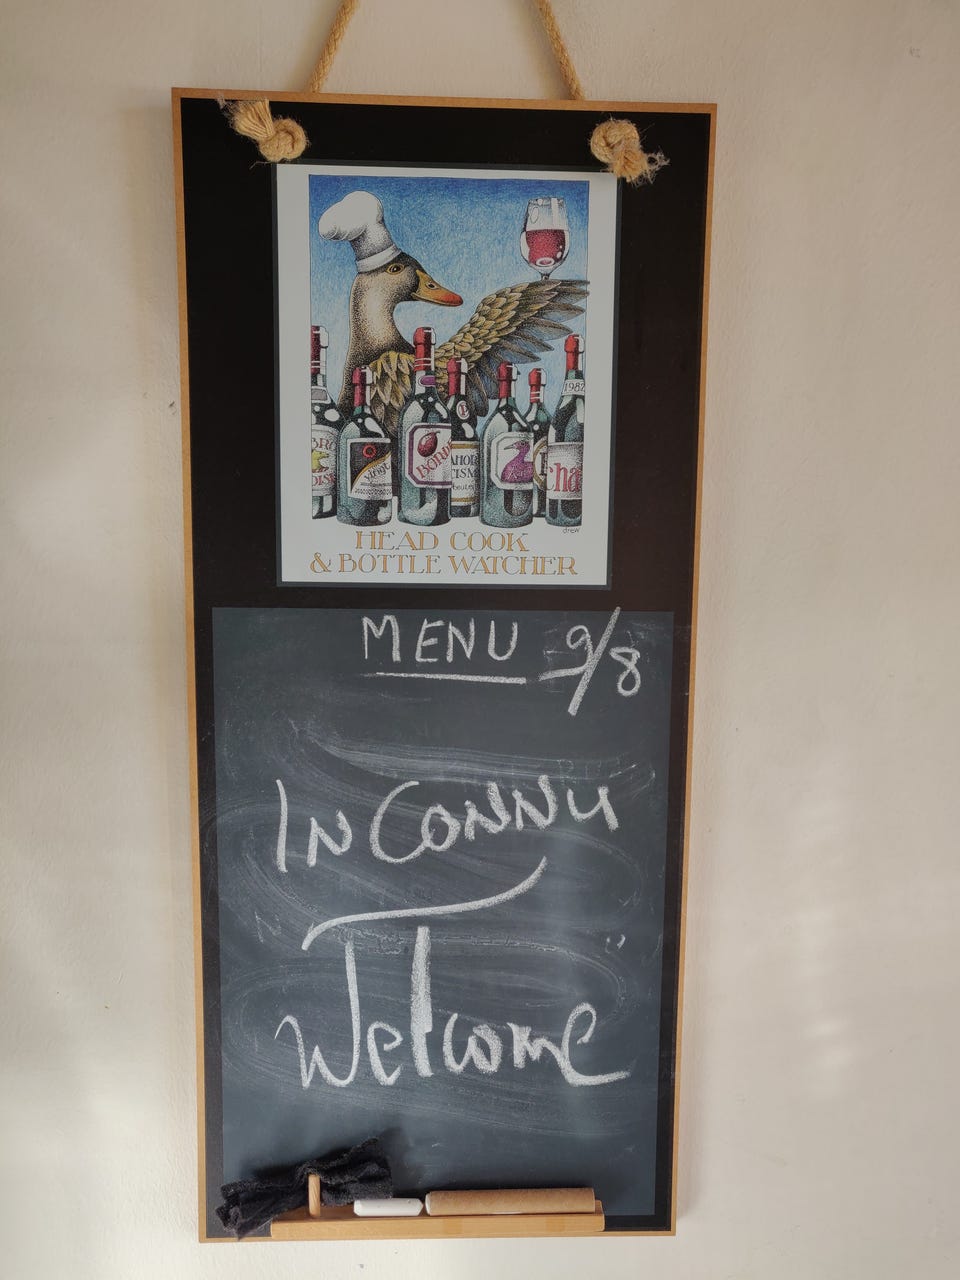 1982
Cha
HEAD COOK
& BOTTLE WATCHER
drew
MENU 9/8
INCONNU
Welcome